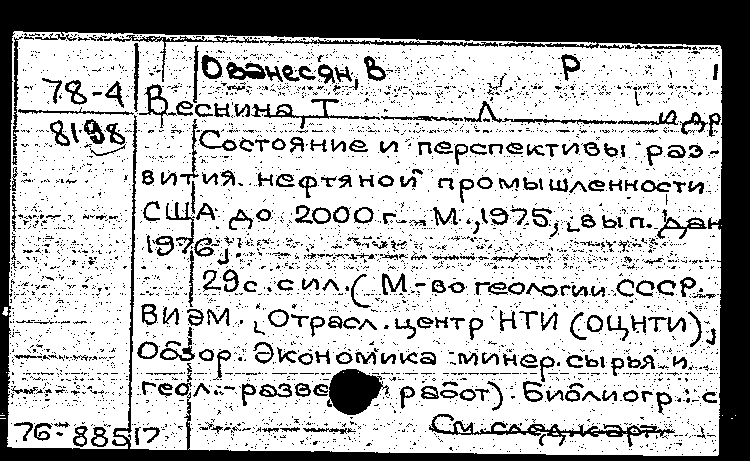 Ованесян, В Р 1
78-4 Веснина, Т Л и др
8198 Состояние и перспективы раз-
вития нефтяной промышленности
США до 2000 г. М., 1975, [вып. дан
1976].
29 с. с ил. (М-во геологии СССР.
ВИЭМ. [Отрасл. центр НТИ (ОЦНТИ)]
Обзор. Экономика минер. сырья и
геол.-разве работ). Библиогр.: с
76-88517 См. след. карт.